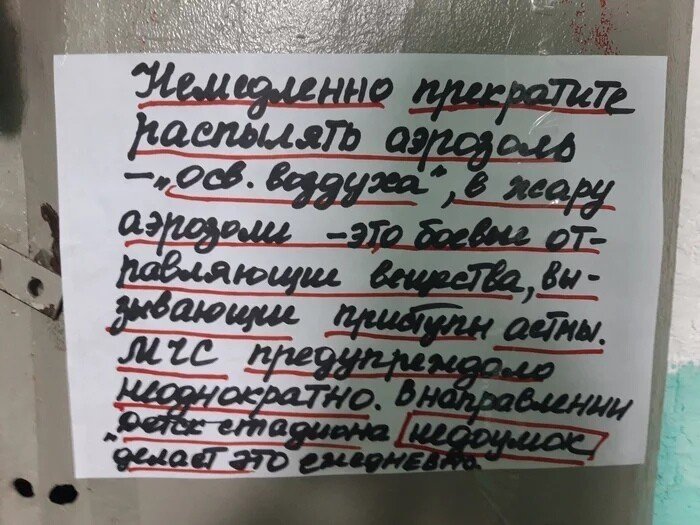 Немедленно прекратите
распылять аэрозоль
–„осв. воздуха", в жару
аэрозоли –это боевые от-
равляющие вещества, вы-
зывающие приступы астмы.
МЧС предупреждало
неоднократно. В направлении
"детск стадиона недоумок
делает это ежедневно.